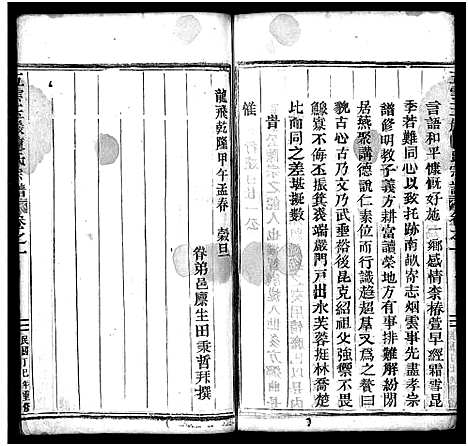 言語和平慷慨好施一鄉感情柰椿萱早經霜雪昆
季若難同心以致托跡南畝寄志烟雲事先盡孝宗
譜修明教子義方耕富讀榮地有事排難解紛閒
居燕聚講德說仁素位而行識趨超羣又為之贊曰
貌古心古乃文乃武垂裕後昆克紹祖父強禦不畏
鰥寡不侮丕振箕裘端嚴門戶出水芙蓉挺林喬楚
比而同之差堪擬數
旹
惟
龍飛乾隆甲午孟春 穀旦
眷弟邑廩生田乘哲拜撰
宗譜
卷之一
民國丁巳年重修